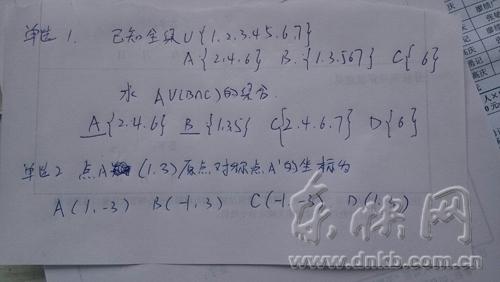 单选 1. 已知全集U{1.2.3.4.5.6.7}
A{2.4.6} B.{1.3.5.6.7} C{6}
求 AU(B∩C)的集合.
A{2.4.6} B{1.3.5} C{2.4.6.7} D{6}
单选2 点A(1.3)原点对称点A'的坐标为
A(1,-3) B(-1,3) C(-1,-3) D(1,3)
东快网
www.dnkb.com.cn